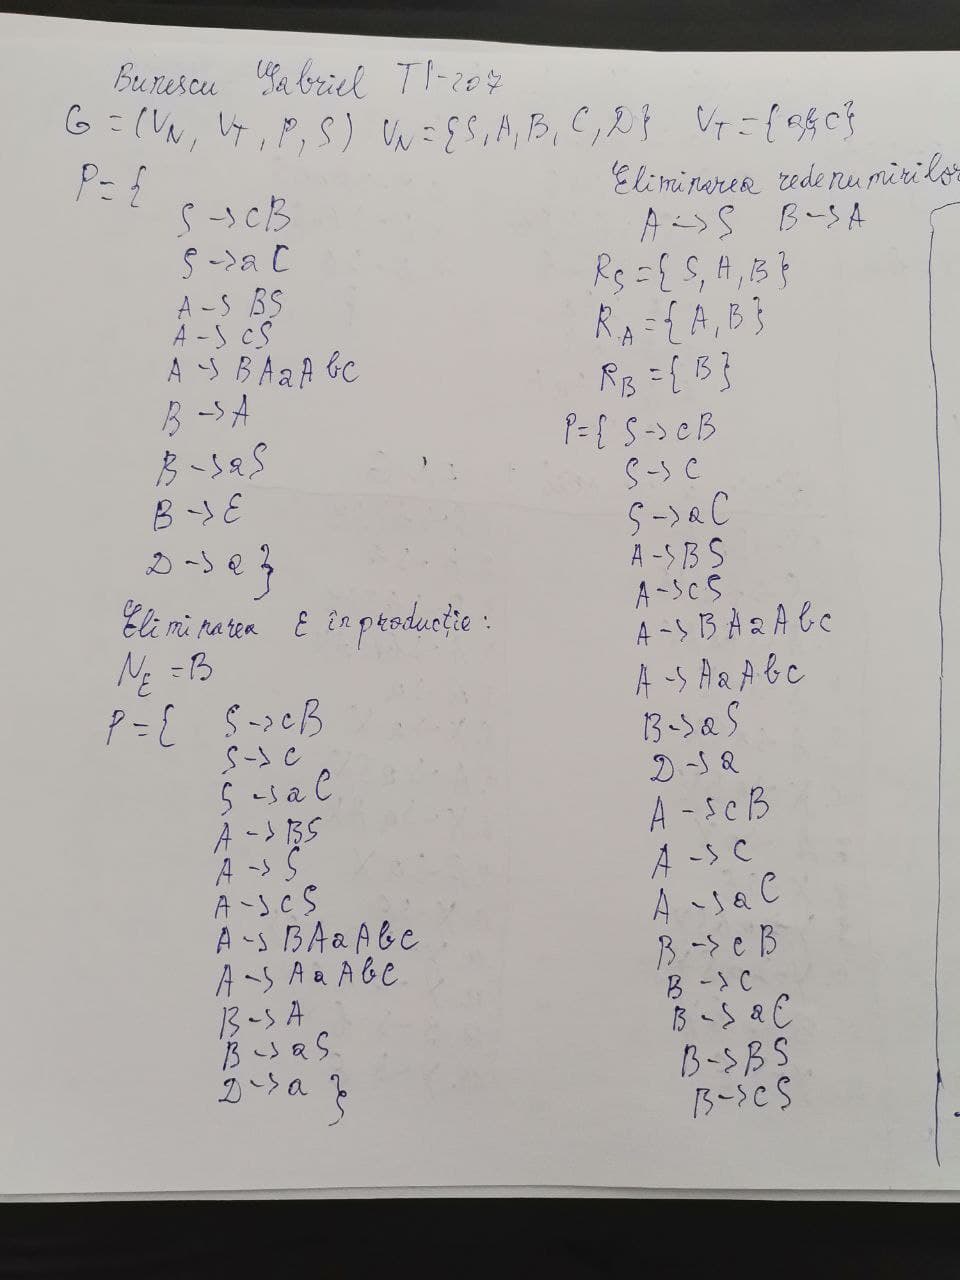 Bunescu Gabriel TI-207
G = (VN, VT, P, S) VN = {S, A, B, C, D} VT = {a,b,c}
P = {
S → cB
S → aC
A → BS
A → cS
A → BAaAbc
B → A
B → aS
B → ε
D → a }
Eliminarea ε în producție:
Nε = B
P = { S → cB
S → c
S → aC
A → BS
A → S
A → cS
A → BAaAbc
A → AaAbc
B → A
B → aS
D → a }
Eliminarea redenumirilor
A → S B → A
RS = { S, A, B }
RA = { A, B }
RB = { B }
P = { S → cB
S → c
S → aC
A → BS
A → cS
A → BAaAbc
A → AaAbc
B → aS
D → a
A → cB
A → c
A → aC
B → cB
B → c
B → aC
B → BS
B → cS